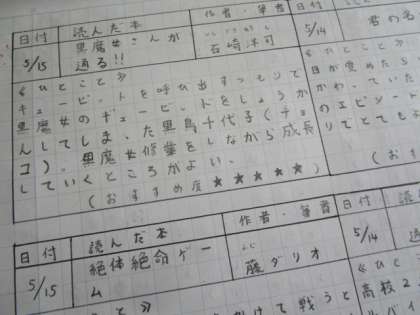 日付
読んだ本
作者・筆者
5/15
黒魔女さんが
通る!!
石崎洋可
≪ひとこと≫
キューピットを呼び出すつもりで
黒魔女のギュービットをしょうか
んしてしまった黒鳥千代子(チョ
コ)。黒魔女修業をしながら成長
していくところがよい。
(おすすめ度★★★★★)
日付
5/14
君の名
日が覚めたら
かわっていた
のエピソード
りとてもよ
(おす
日付
読んだ本
作者・筆者
5/15
絶体絶命ゲー
ム
藤ダリオ
日付
5/14
≪ひと
高校2
かけて戦うと